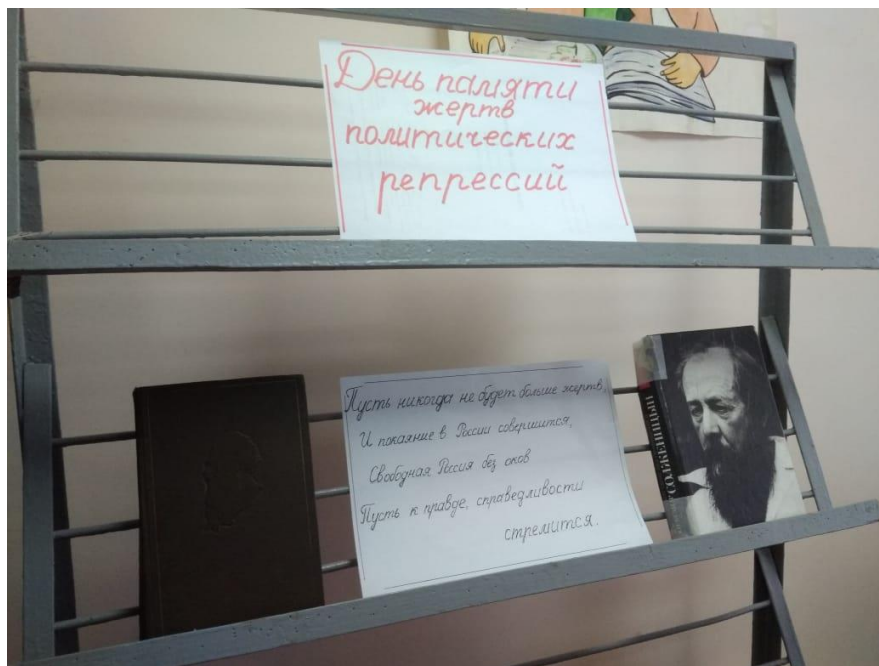 День памяти
жертв
политических
репрессий
Пусть никогда не будет больше жертв,
И покаяние в России совершится,
Свободная Россия без оков
Пусть к правде, справедливости
стремится.
СОЛЖЕНИЦЫН